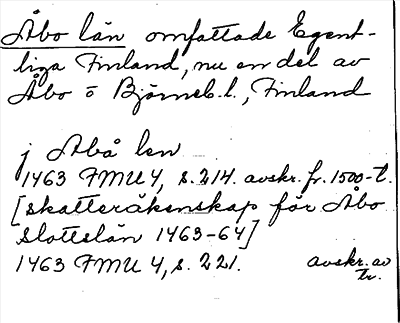 Åbo län omfattade Egent-
liga Finland, nu en del av
Åbo o Björneb.l., Finland
j Abå len
1463 FMU 4, s.214. avskr. fr. 1500-t.
[skatteräkenskap för Åbo
Slottslän 1463-64]
1463 FMU 4, s. 221. avskr. av
tr.